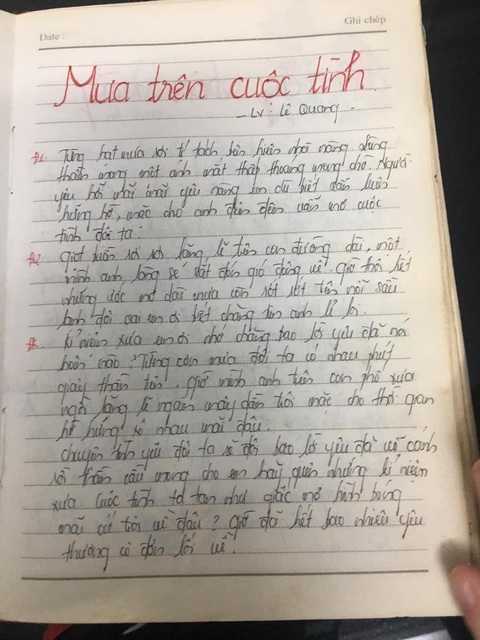 Ghi chép
Date :
Mưa trên cuộc tình
- LV : Lê Quang -
Từng hạt mưa rơi tí tách bên hiên nhà nàng đừng
thấp thoáng mong chờ. Người
yêu hỡi mãi mãi yêu nàng em dù biết đến luôn
hững hờ, mặc cho anh đêm đêm vẫn mơ cuộc
tình đôi ta.
giọt buồn rơi rơi lặng lẽ trên con đường dài, một
mình anh lòng se sắt đón gió đông về. giờ thôi hết
những ước mơ dài mưa còn rớt rớt trên nỗi sầu
em ơi biết chăng tim anh lẻ loi.
kỉ niệm xưa em ơi nhớ chăng bao lời yêu đã nói
hôm nào? Từng cơn mưa đôi ta có nhau phút
giây thần tiên. giờ mình anh trên con phố xưa
nghe lặng lẽ ngàn mây dần trôi mặc cho thời gian
hề hững xô nhau mãi đâu.
chuyện tình yêu đôi ta bao lời yêu đã vỡ cánh
rồi thầm cầu mong cho em hãy quên những kỉ niệm
xưa cuộc tình ta tan như giấc mơ hình bóng
mãi cứ trôi về đâu? giờ đã hết bao nhiêu yêu
thương cô đơn lối về.